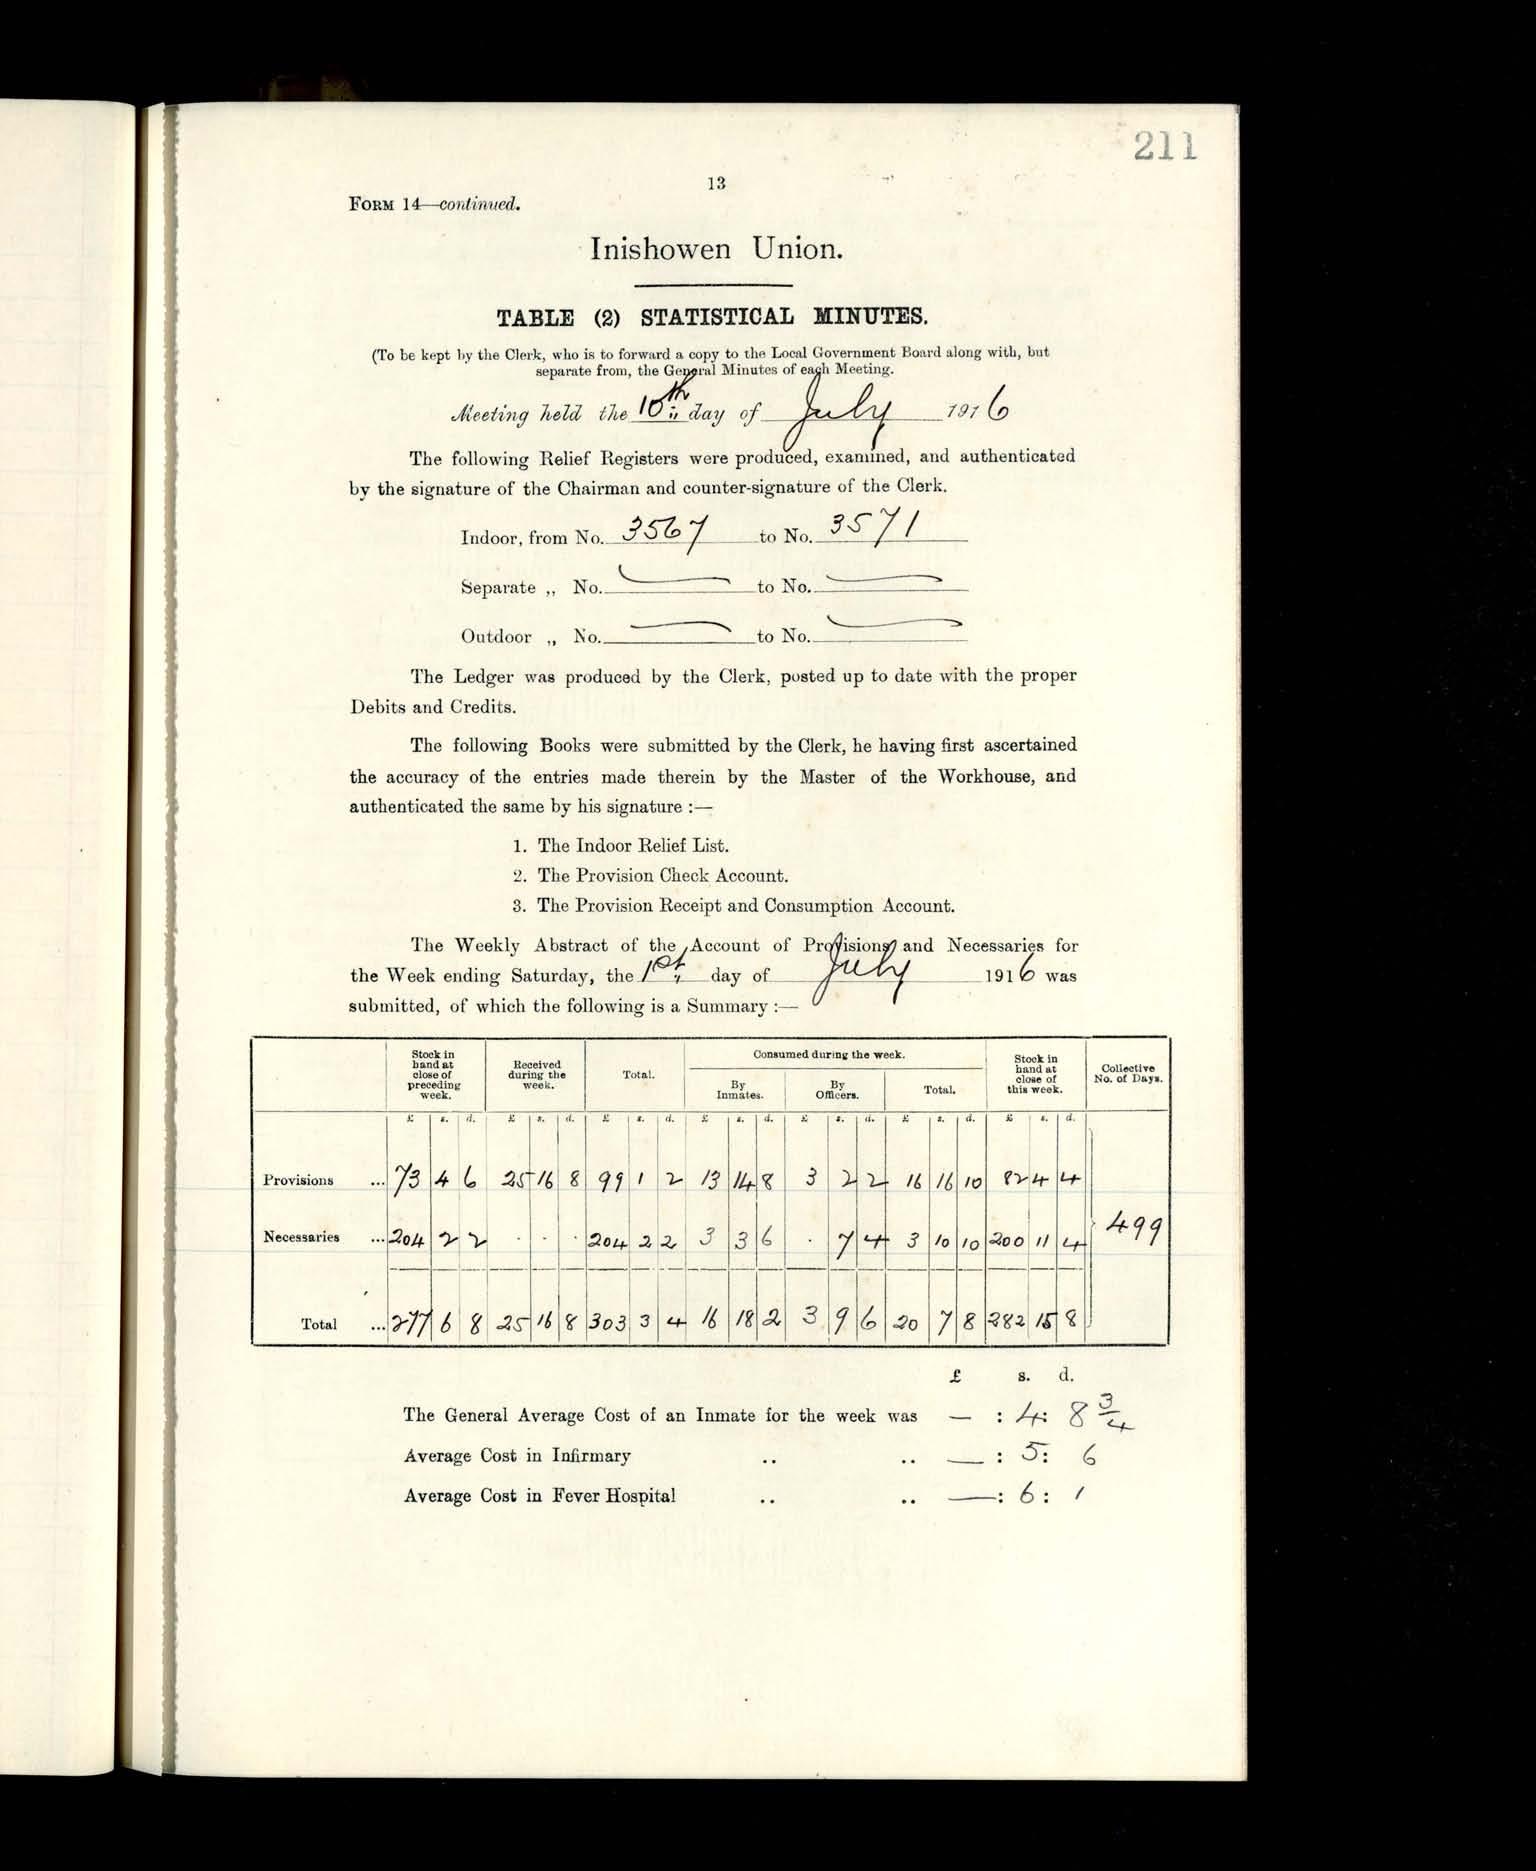 211
13
FORM 14—continued.
Inishowen Union.
TABLE (2) STATISTICAL MINUTES.
(To be kept by the Clerk, who is to forward a copy to the Local Government Board along with, but
separate from, the General Minutes of each Meeting.
Meeting held the 10th day of July 1916
The following Relief Registers were produced, examined, and authenticated
by the signature of the Chairman and counter-signature of the Clerk.
Indoor, from No. 3567 to No. 3571
Separate „ No. — to No. —
Outdoor „ No. — to No. —
The Ledger was produced by the Clerk, posted up to date with the proper
Debits and Credits.
The following Books were submitted by the Clerk, he having first ascertained
the accuracy of the entries made therein by the Master of the Workhouse, and
authenticated the same by his signature :—
1. The Indoor Relief List.
2. The Provision Check Account.
3. The Provision Receipt and Consumption Account.
The Weekly Abstract of the Account of Provisions and Necessaries for
the Week ending Saturday, the 1st day of July 1916 was
submitted, of which the following is a Summary :—
Stock in hand at close of preceding week. Received during the week. Total. Consumed during the week. By Inmates. By Officers. Total. Stock in hand at close of this week. Collective No. of Days.
£ s. d. £ s. d. £ s. d. £ s. d. £ s. d. £ s. d. £ s. d.
Provisions ... 73 4 6 25 16 8 99 1 2 13 14 8 3 2 2 16 16 10 82 4 4
Necessaries ... 204 2 2 . . . 204 2 2 3 3 6 . 7 4 3 10 10 200 11 4 499
Total ... 277 6 8 25 16 8 303 3 4 16 18 2 3 9 6 20 7 8 282 15 8
£ s. d.
The General Average Cost of an Inmate for the week was — : 4 : 8 3/4
Average Cost in Infirmary .. .. — : 5 : 6
Average Cost in Fever Hospital .. .. — : 6 : 1